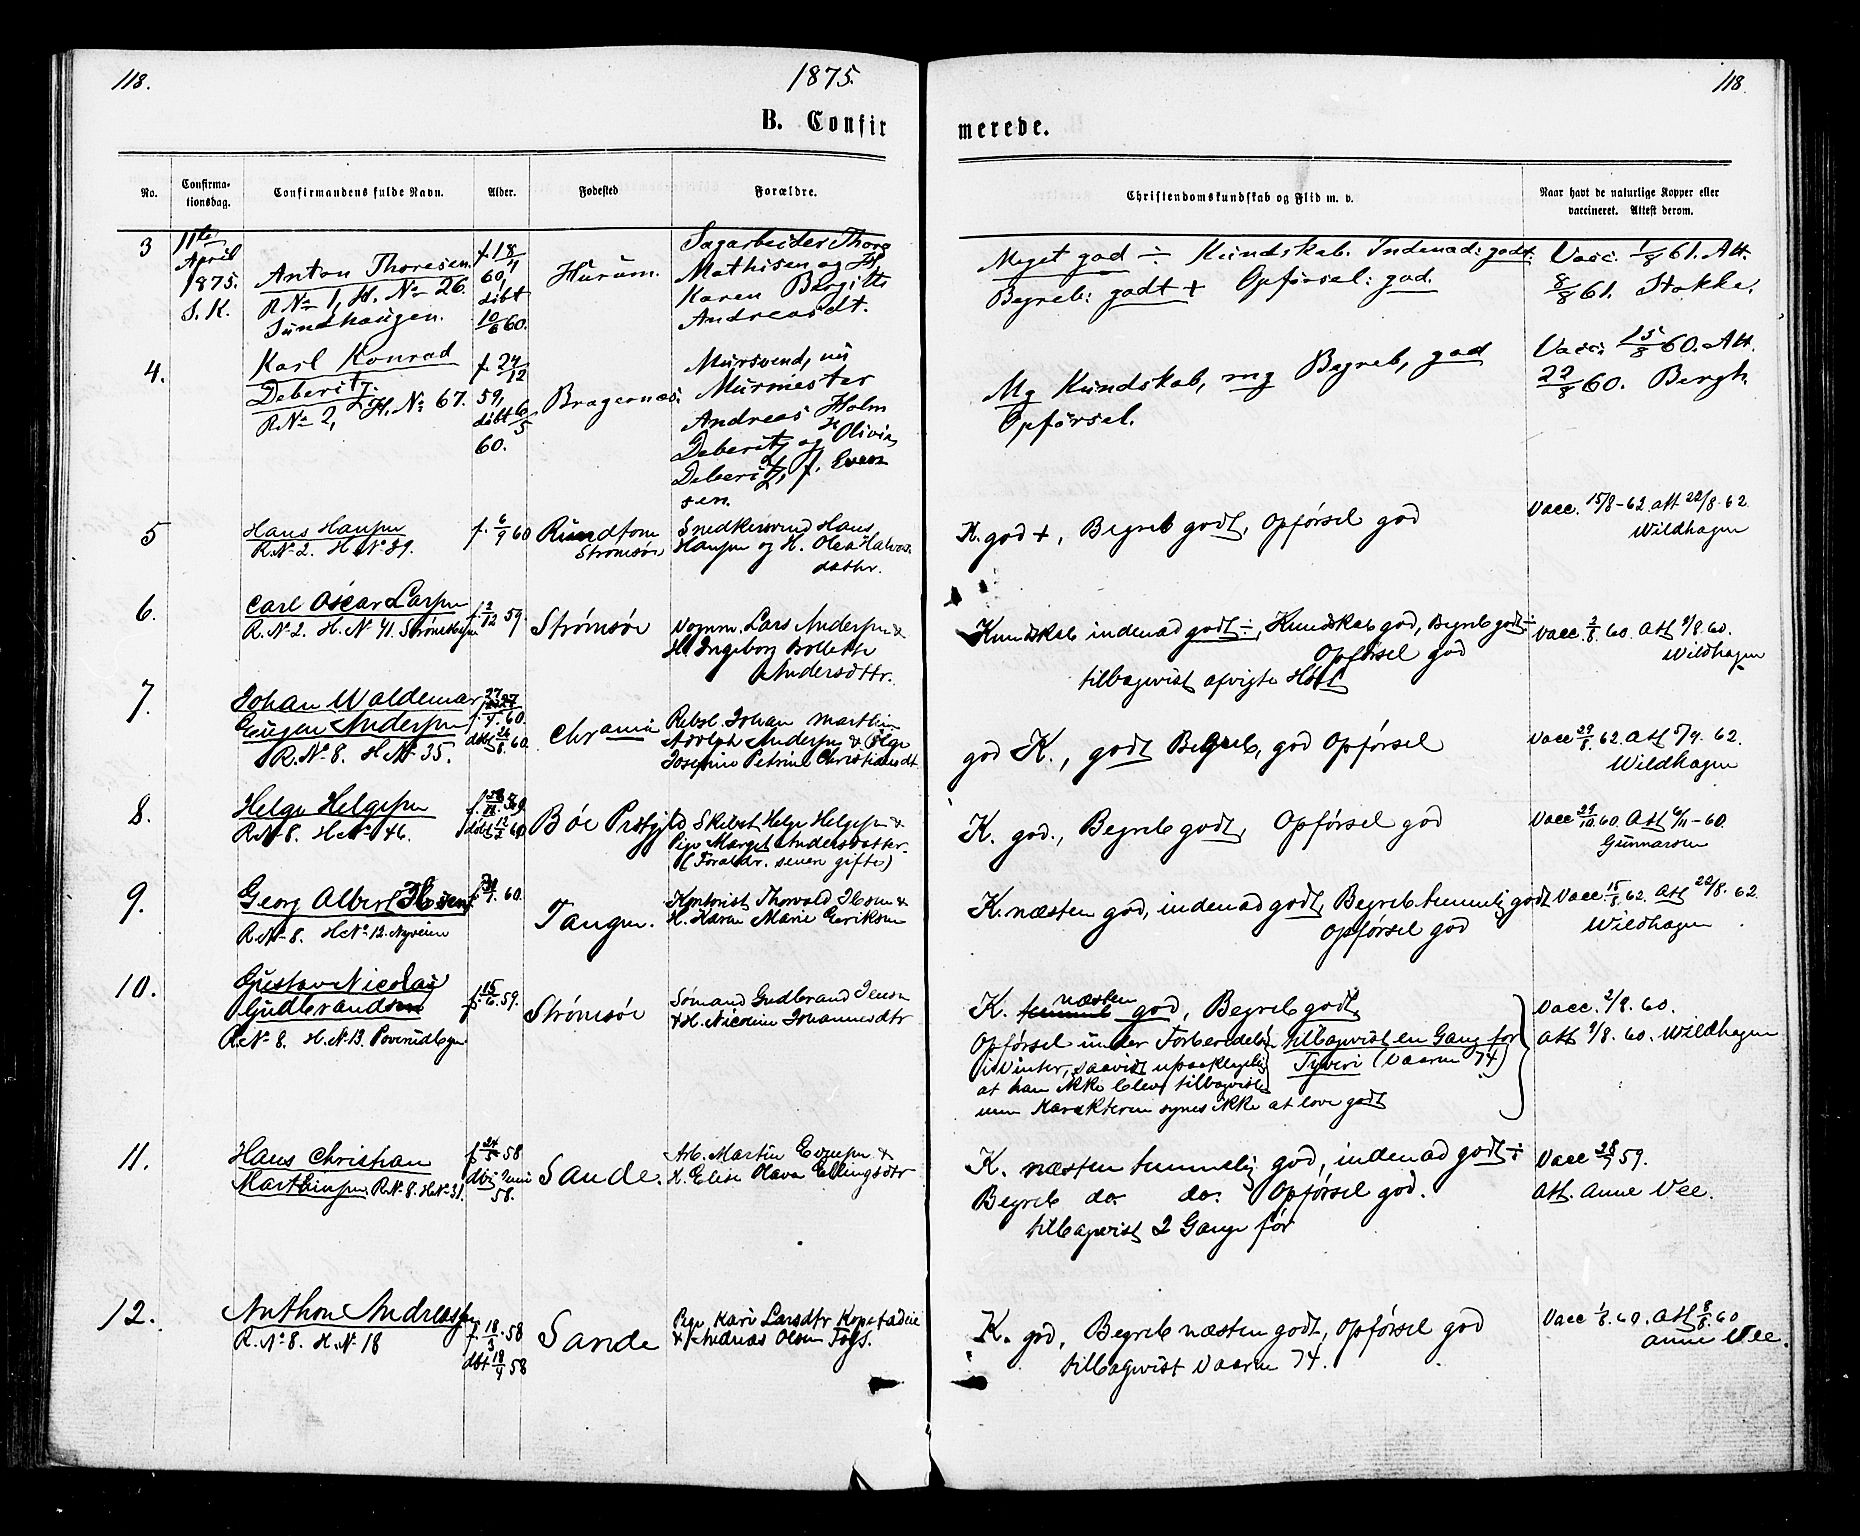 118.
1875.
118.
B. Confir
merede.
No.
Confirma-
tionsdag.
Confirmandens fulde Navn.
Alder.
Fødested
Forældre.
Christendomskundskab og Flid m. v.
Naar havt de naturlige Kopper eller
vaccineret. Attest derom.
3
11te
April
1875.
S. K.
Anton Thoresen
R. No 1, H. No 26.
Sundhaugen.
f. 18/4
60,
døbt
10/6 60.
Hurum.
Sagarbeider Thore
Mathisen og H.
Karen Bergitte
Andreasdt.
Meget god ÷ Kundskab. Indenad: godt.
Begreb: godt + Opførsel: god.
Vacc. 1/8 61. Att.
8/8 61. Stokke.
4.
Karl Konrad
Deberitz.
R. No 2, H. No 67.
f. 24/12
59,
døbt 6/5
60.
Bragernæs.
Mursvend, nu
Murmester
Andreas Holm
Deberitz og H. Olivia
Deberitz, f. Even
sen.
Mg Kundskab, mg Begreb, god
Opførsel.
Vacc. 15/8 60. Att.
22/8 60. Bergh.
5
Hans Hansen
R. No 2. H. No 81.
f. 6/9 60
Rundtom
Strømsø
Snedkersvend Hans
Hansen og H. Olea Halvors
datter.
K. god +, Begreb godt, Opførsel god
Vacc. 15/8-62. att 22/8. 62
Wildhagen
6.
Carl Oscar Larsen
R. No 2. H. No 41.
f. 2/12 59.
Strømsøe
Lars Andersen &
H. Ingeborg Bollette
Andersdttr.
Kundskab indenad godt ÷, Kundskab god, Begreb godt ÷
Opførsel god
tilbagevist afvigte Høst
Vacc. 2/8. 60. Att 9/8. 60.
Wildhagen
7.
Johan Waldemar
Eugen Andersen
R. No 8. H. No 35.
f. 27/4. 60.
døbt 26/8 60.
Chrania
Rebsl. Johan Marthin
Adolph Andersen & Pige
Josefine Petrine Christiansdt
god K., godt Begreb, god Opførsel
Vacc 29/8. 62. Att 5/9. 62.
Wildhagen
8.
Helge Helgesen
R. No 8. H. No 46.
døbt 12/2 60
Bøe Prstgjld
Skibst. Helge Helgesen &
Pige Margit Andersdatter.
(Forældr. senere gifte)
K. god., Begreb godt, Opførsel god
Vacc 29/10. 60. Att 6/11-60.
Gunnarsen
9.
Georg Albert Ibsen
R. No 8. H. No 12. Nyveien
60.
Tangen.
Kontorist Thorvald Ibsen &
H. Karen Marie Eeriksen
K. næsten god, indenad godt, Begreb temmelig godt
Opførsel god
Vacc. 15/8. 62. Att 22/8. 62.
Wildhagen
10.
Gustav Nicolai
Gudbrandsen
R. No 8. H. No 13.
f. 15/6. 59.
Strømsøe
Sømand Gudbrand Jensen
& H. Nicoline Johannesdtr
K. næsten god, Begreb godt
Opførsel under Forberedelsen
i Vinter, saavidt upaaklagelig
at han ikke blev tilbagevist
men Karakteren synes ikke at love godt
Tilbagevist en Gang for
Tyveri (Vaaren 74)
Vacc. 2/8. 60.
Att 9/8. 60. Wildhagen
11.
Hans Christian
Marthinsen. R. No 8. H. No 31.
f. 24/5 58
dbt Juni
58.
Sande.
Arb. Martin Evensen &
H. Elise Olava Ellingsdtr
K. næsten temmelig god, indenad godt ÷
Begreb do. do. Opførsel god.
tilbagevist 2 Gange før
Vacc 28/7 59.
Att. Anne Vee.
12.
Anthon Andreassen
R. No 8. H. No 18
f. 18/3. 58
dbt 18/4 58
Sande
Pige Kari Larsdtr
& Andreas Olsen
K. god, Begreb næsten godt, Opførsel god
tilbagevist Vaaren 74.
Vacc 1/8. 60. Att 8/8. 60
Anne Vee.